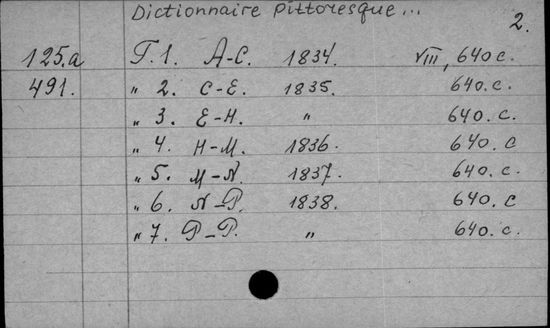 Dictionnaire Pittoresque...
2.
125.a T.1. A-C. 1834. VIII, 640 c.
491. " 2. C-E. 1835. 640. c.
" 3. E-H. " 640. c.
" 4. H-M. 1836. 640. c
" 5. M-N. 1837. 640. c.
" 6. N-P. 1838. 640. c
" 7. P-P. " 640. c.